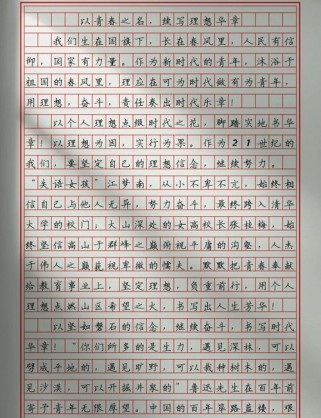 以青春之名，续写理想华章
我们生在国旗下，长在春风里，人民有信
仰，国家有力量。作为新时代的青年，沐浴于
祖国的春风里，理应在可为时代做有为青年，
用理想，奋斗，责任奏出时代乐章！
以个人理想点缀时代之花，脚踏实地书华
章！以理想为因，实行为果。作为21世纪的
我们，要坚定自己的理想信念，继续努力。
“失语女孩”江梦南，从小不卑不亢，始终相
信自己与他人无异，努力奋斗，最终跨入清华
大学的校门；大山深处的女高校长张桂梅，始
终坚信高山于群峰之巅俯视平庸的沟壑，人杰
于伟人之巅藐视卑微的懦夫。默默把青春奉献
给教育事业上，坚定理想，负重前行，用个人
理想点燃山区希望之火，书写出人生芳华！
以坚如磐石的信念，继续奋斗，书写时代
华章！“你们所多的是生力，遇见深林，可以
劈成平地的，遇见旷野，可以栽种树木的，遇
见沙漠，可以开掘井泉的”鲁迅先生在百年前
寄予青年无限厚望。中国的百年筚路蓝缕，艰